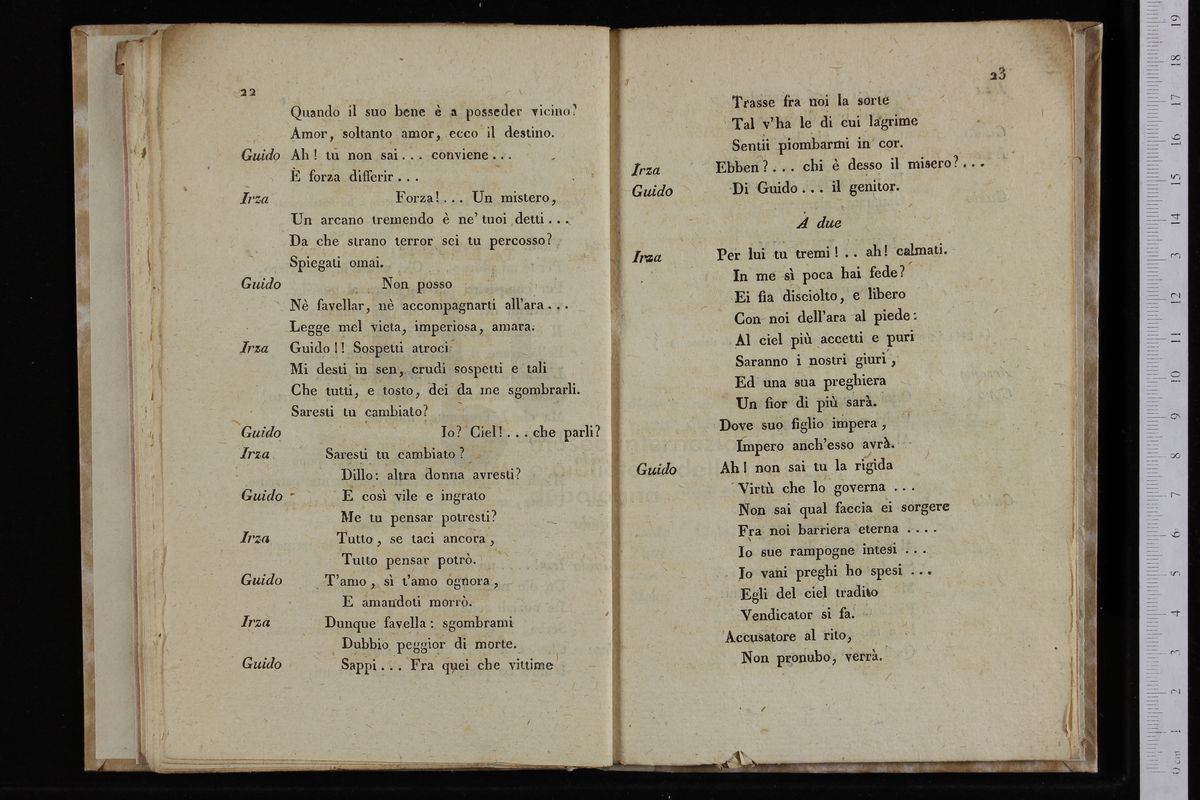 22
Quando il suo bene è a posseder vicino?
Amor, soltanto amor, ecco il destino.
Guido Ah! tu non sai... conviene...
È forza differir...
Irza Forza!... Un mistero,
Un arcano tremendo è ne' tuoi detti...
Da che strano terror sei tu percosso?
Spiegati omai.
Guido Non posso
Nè favellar, nè accompagnarti all'ara...
Legge mel vieta, imperiosa, amara.
Irza Guido!! Sospetti atroci
Mi desti in sen, crudi sospetti e tali
Che tutti, e tosto, dei da me sgombrarli.
Saresti tu cambiato?
Guido Io? Ciel!... che parli?
Irza Saresti tu cambiato?
Dillo: altra donna avresti?
Guido E così vile e ingrato
Me tu pensar potresti?
Irza Tutto, se taci ancora,
Tutto pensar potrò.
Guido T'amo, sì t'amo ognora,
E amandoti morrò.
Irza Dunque favella: sgombrami
Dubbio peggior di morte.
Guido Sappi... Fra quei che vittime
23
Trasse fra noi la sorte
Tal v'ha le di cui lagrime
Sentii piombarmi in cor.
Irza Ebben?... chi è desso il misero?...
Guido Di Guido... il genitor.
A due
Irza Per lui tu tremi!.. ah! calmati.
In me sì poca hai fede?
Ei fia disciolto, e libero
Con noi dell'ara al piede:
Al ciel più accetti e puri
Saranno i nostri giuri,
Ed una sua preghiera
Un fior di più sarà.
Dove suo figlio impera,
Impero anch'esso avrà.
Guido Ah! non sai tu la rigida
Virtù che lo governa...
Non sai qual faccia ei sorgere
Fra noi barriera eterna....
Io sue rampogne intesi...
Io vani preghi ho spesi...
Egli del ciel tradito
Vendicator si fa.
Accusatore al rito,
Non pronubo, verrà.
0 cm 1 2 3 4 5 6 7 8 9 10 11 12 13 14 15 16 17 18 19